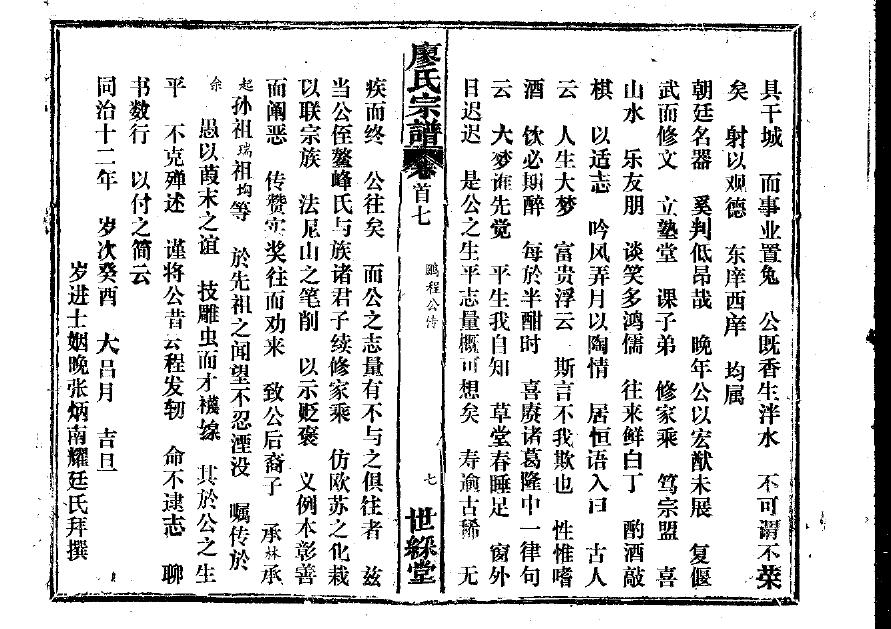 具干城　而事业置兔　公既香生泮水　不可谓不荣
矣　射以观德　东庠西庠　均属
朝廷名器　奚判低昂哉　晚年公以宏猷未展　复偃
武而修文　立塾堂　课子弟　修家乘　笃宗盟　喜
山水　乐友朋　谈笑多鸿儒　往来鲜白丁　酌酒敲
棋　以适志　吟风弄月以陶情　居恒语入曰　古人
云　人生大梦　富贵浮云　斯言不我欺也　性惟嗜
酒　饮必期醉　每於半酣时　喜赓诸葛隆中一律句
云　大梦谁先觉　平生我自知　草堂春睡足　窗外
日迟迟　是公之生平志量概可想矣　寿逾古稀　无
廖氏宗譜
卷首七
鹏程公传
七
世綵堂
疾而终　公往矣　而公之志量有不与之俱往者　兹
当公侄鳌峰氏与族诸君子续修家乘　仿欧苏之化裁
以联宗族　法尼山之笔削　以示贬褒　义例本彰善
而阐恶　传赞实奖往而劝来　致公后裔子　承林承
起孙祖瑞祖均等　於先祖之闻望不忍湮没　嘱传於
余　愚以葭末之谊　技雕虫而才襪線　其於公之生
平　不克殚述　谨将公昔云程发轫　命不逮志　聊
书数行　以付之简云
同治十二年　岁次癸酉　大吕月　吉旦
岁进士姻晚张炳南耀廷氏拜撰